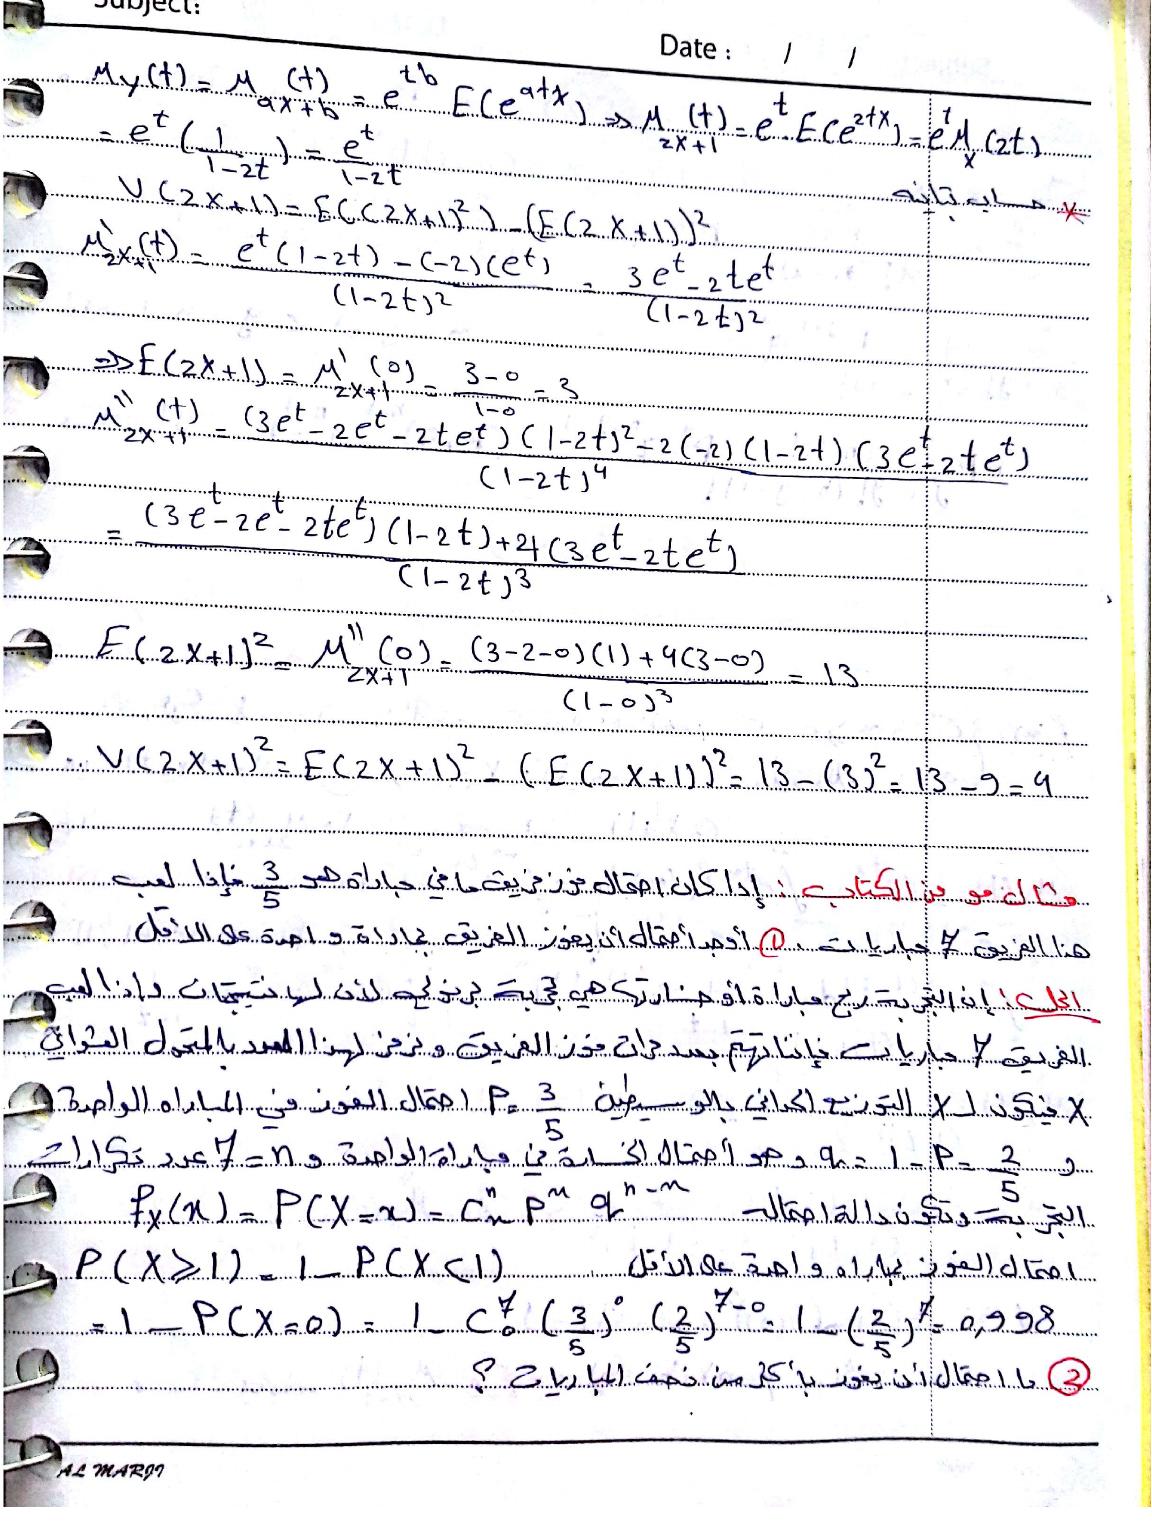 Subject:
Date : / /
My(t) = M ax+b (t) = e^tb E(e^atx) ⇒ M 2x+1 (t) = e^t . E(e^2tx) = e^t Mx (2t)
= e^t (1/(1-2t)) = e^t/(1-2t)
* حساب تباينه
V(2X+1) = E((2X+1)²) - (E(2X+1))²
M' 2x+1 (t) = (e^t (1-2t) - (-2)(e^t))/(1-2t)² = (3e^t - 2te^t)/(1-2t)²
⇒ E(2X+1) = M' 2X+1 (0) = (3-0)/(1-0) = 3
M'' 2X+1 (t) = ((3e^t - 2e^t - 2te^t)(1-2t)² - 2(-2)(1-2t)(3e^t - 2te^t))/(1-2t)⁴
= ((3e^t - 2e^t - 2te^t)(1-2t) + 4(3e^t - 2te^t))/(1-2t)³
E(2X+1)² = M'' 2X+1 (0) = ((3-2-0)(1) + 4(3-0))/(1-0)³ = 13
∴ V(2X+1)² = E(2X+1)² - (E(2X+1))² = 13 - (3)² = 13 - 9 = 4
مثال مو من الكتاب : إذا كان احتمال فوز فريق ما في مباراة هو 3/5 فإذا لعب
هذا الفريق 7 مباريات ، ① أوجد أحتمال أن يفوز الفريق بمباراة واحدة على الأقل
الحل : إن التجربة ربح مباراة أو خسارتها هي تجربة برنولية لأن لها نتيجتان وإذا لعب
الفريق 7 مباريات فإننا نهتم بعدد مرات فوز الفريق ونرمز لهذا العدد بالمتحول العشوائي
X فيكون لـ X التوزيع الحداني بالوسيطين P = 3/5 احتمال الفوز في المباراه الواحدة
و q = 1 - P = 2/5 وهو أحتمال الخسارة في مباراة الواحدة و n = 7 عدد تكرارات
التجربة وتكون دالة احتماله fX(x) = P(X = x) = C^n_x P^x q^n-x
احتمال الفوز بمباراه واحدة على الأقل P(X ⩾ 1) = 1 - P(X < 1)
= 1 - P(X = 0) = 1 - C^7_0 (3/5)^0 (2/5)^7-0 = 1 - (2/5)^7 = 0,998
② ما احتمال أن يفوز بأكثر من نصف المباريات ؟
AL MARJI